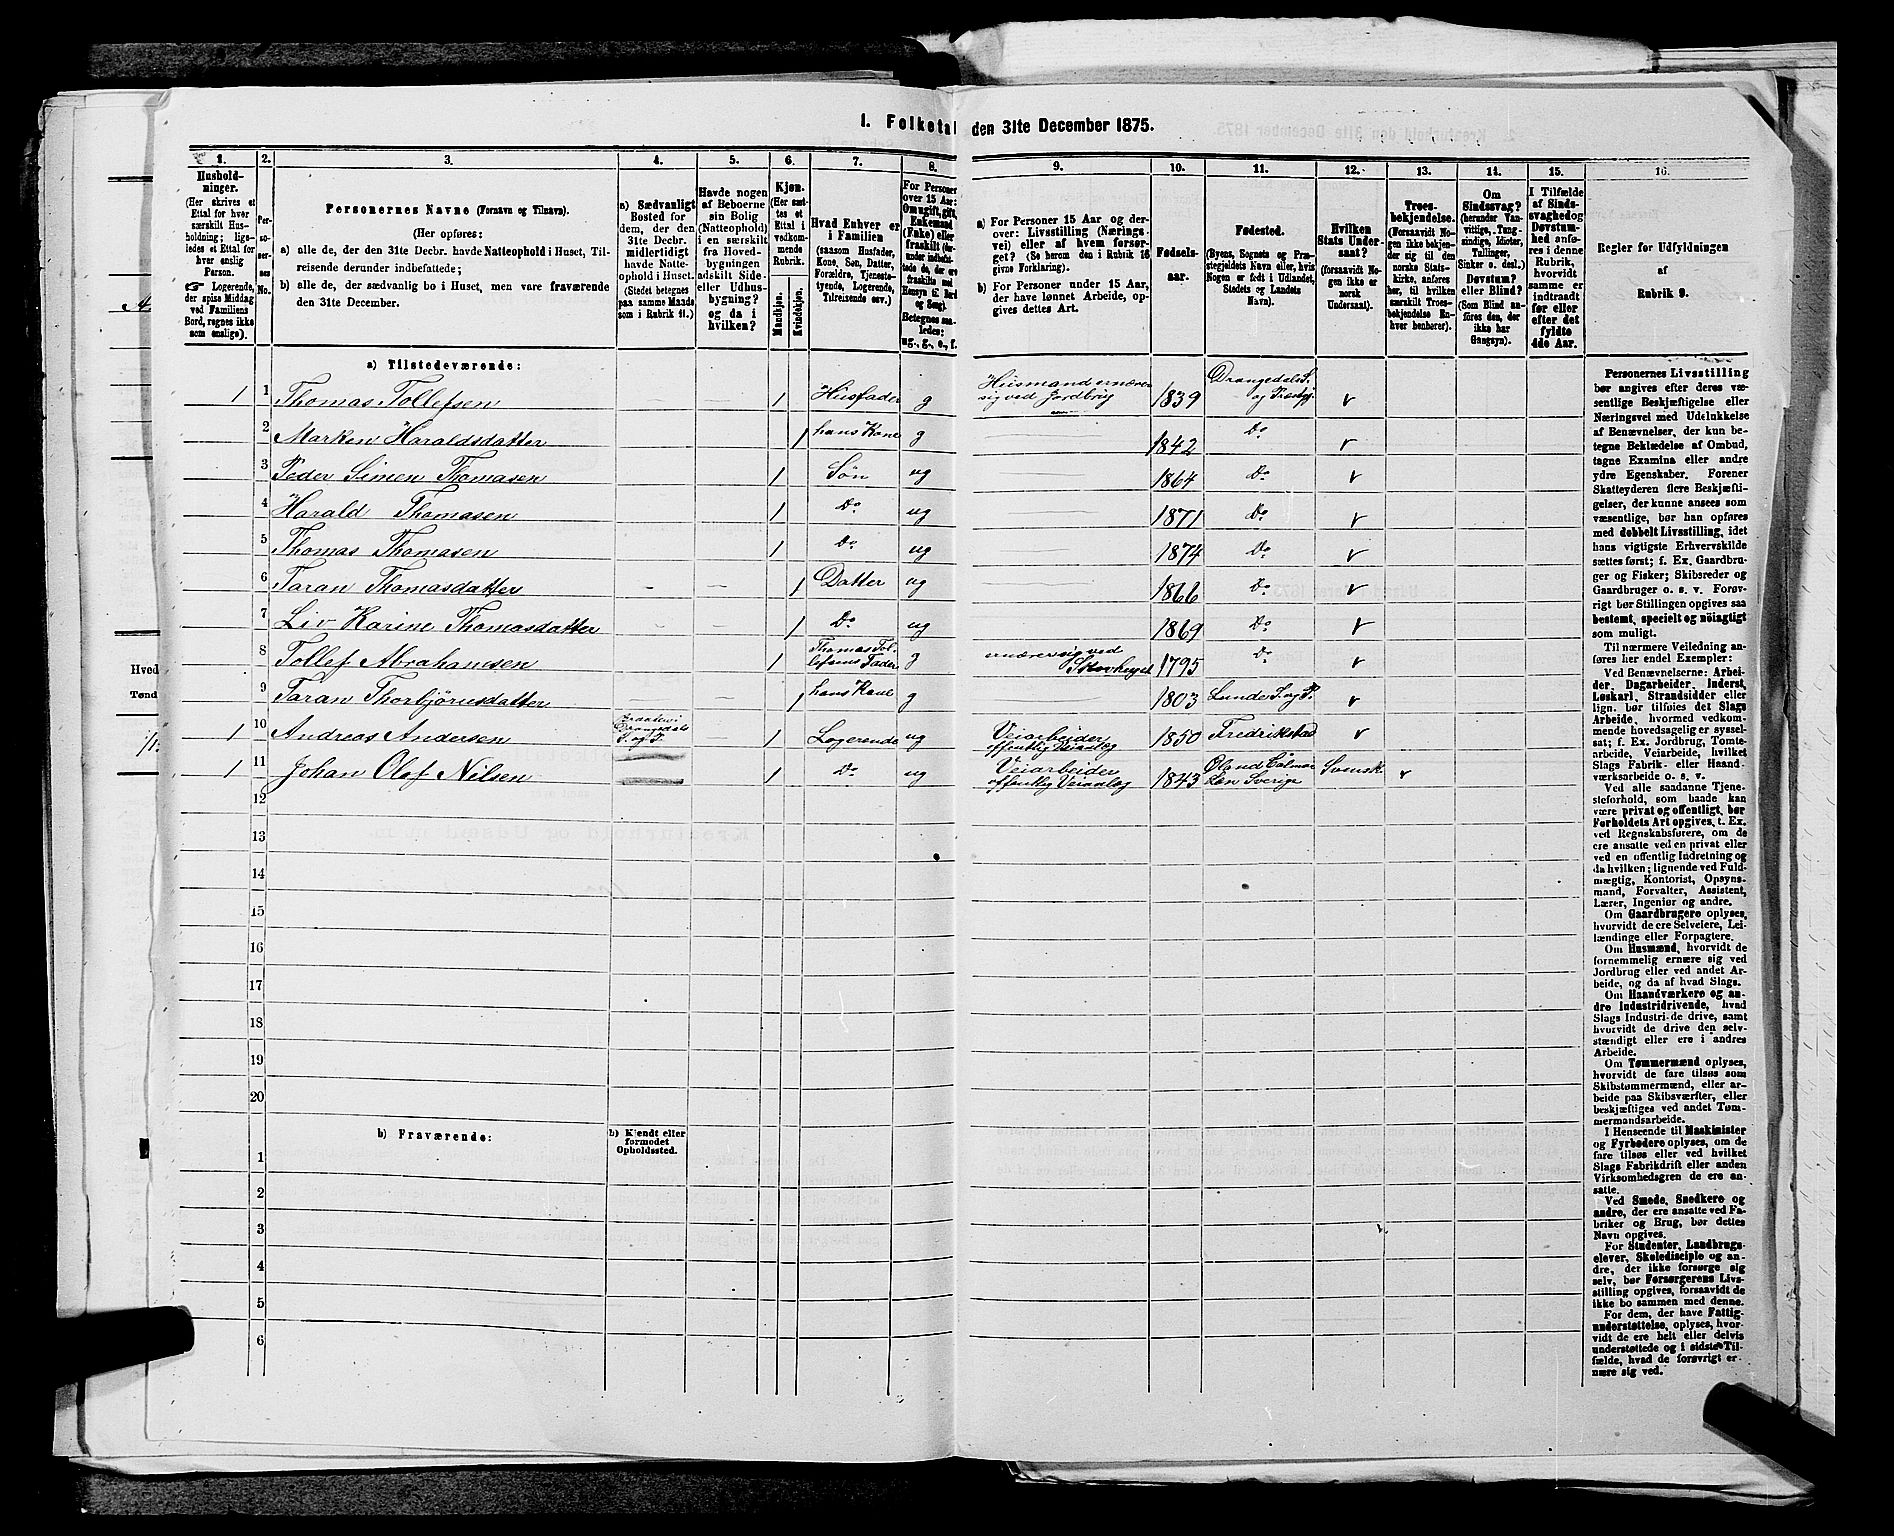 1. Folketal den 31te December 1875.
1. 2. 3. 4. 5. 6. 7. 8. 9. 10. 11. 12. 13. 14. 15. 16.
Hushold-
ninger.
(Her skrives et
Ettal for hver
særskilt Hus-
holdning; lige-
ledes et Ettal for
hver enslig
Person.
☞ Logerende,
der spise Middag
ved Familiens
Bord, regnes ikke
som enslige).
Per-
so-
ner-
nes
No.
Personernes Navne (Fornavn og Tilnavn).
(Her opføres:
a) alle de, der den 31te Decbr. havde Natteophold i Huset, Til-
reisende derunder indbefattede;
b) alle de, der sædvanlig bo i Huset, men vare fraværende
den 31te December.
a) Sædvanligt
Bosted for
dem, der den
31te Decbr.
midlertidigt
havde Natte-
ophold i Huset.
(Stedet betegnes
paa samme Maade
som i Rubrik 11.)
Havde nogen
af Beboerne
sin Bolig
(Natteophold)
i en særskilt
fra Hoved-
bygningen
adskilt Side-
eller Udhus-
bygning?
og da i
hvilken?
Kjøn.
(Her sæt-
tes et
Ettal i
vedkom-
mende
Rubrik.
Mandkjøn.
Kvindekjøn.
Hvad Enhver er
i Familien
(saasom Husfader,
Kone, Søn, Datter,
Forældre, Tjeneste-
tyende, Logerende,
Tilreisende osv.)
For Personer
over 15 Aar:
Om ugift, gift,
Enkemand
(Enke) eller
fraskilt
Betegnes saa-
ledes:
ug., g., e., f.
a) For Personer 15 Aar og der-
over: Livsstilling (Nærings-
vei) eller af hvem forsør-
get? (Se herom den i Rubrik 16
givne Forklaring).
b) For Personer under 15 Aar,
der have lønnet Arbeide, op-
gives dettes Art.
Fødsels-
aar.
Fødested.
(Byens, Sognets og Præ-
stegjeldets Navn eller, hvis
Nogen er født i Udlandet,
Stedets og Landets
Navn).
Hvilken
Stats Under-
saat?
(forsaavidt No-
gen ikke er
norsk
Undersaat).
Troes-
bekjendelse.
(Forsaavidt No-
gen ikke bekjen-
der sig til den
norske Stats-
kirke, anføres
her, til hvilken
særskilt Troes-
bekjendelse En-
hver henhører).
Om
Sindssvag?
(herunder Van-
vittige, Tung-
sindige, Idioter,
Tullinger,
Sinker o. desl.)
Døvstum?
eller Blind?
(Som Blind an-
føres den, der
ikke har
Gangsyn).
I Tilfælde
af Sinds-
svaghed og
Døvstum-
hed anfø-
res i denne
Rubrik,
hvorvidt
samme er
indtraadt
før eller
efter det
fyldte
4de Aar.
Regler for Udfyldningen
af
Rubrik 9.
a) Tilstedeværende:
1 1 Thomas Tollefsen 1 Husfader g Husmand ernærer sig ved Jordbrug 1839 Drangedals S. og Præstgj. v
2 Marken Haraldsdatter 1 hans Kone g 1842 Do v
3 Peder Simen Thomasen 1 Søn ug 1864 Do v
4 Harald Thomasen 1 Do ug 1871 Do v
5 Thomas Thomasen 1 Do ug 1874 Do v
6 Taran Thomasdatter 1 Datter ug 1866 Do v
7 Liv Karine Thomasdatter 1 Do ug 1869 Do v
8 Tollef Abrahamsen 1 Thomas Tollefsens Fader g ernærer sig ved 1795 Do v
9 Taran Thorbjörnsdatter 1 hans Kone g 1803 Lunde S. og P. v
1 10 Andreas Andersen Drangedals S. og P. 1 Logerende ug Veiarbeider offentlig Veianlæg 1850 Fredrikstad v
1 11 Johan Olof Nilsen 1 Do ug Veiarbeider offentlig Veianlæg 1843 Öland Calmar Len Sverige Svensk v
12
13
14
15
16
17
18
19
20
b) Fraværende:
b) Kjendt eller
formodet
Opholdssted.
1
2
3
4
5
6
Personernes Livsstilling
bør angives efter deres væ-
sentlige Beskjæftigelse eller
Næringsvei med Udelukkelse
af Benævnelser, der kun be-
tegne Beklædelse af Ombud,
tagne Examina eller andre
ydre Egenskaber. Forener
Skatteyderen flere Beskjæfti-
gelser, der kunne ansees som
væsentlige, bør han opføres
med dobbelt Livsstilling, idet
hans vigtigste Erhvervskilde
sættes først; f. Ex. Gaardbru-
ger og Fisker; Skibsreder og
Gaardbruger o. s. v. Forøv-
rigt bør Stillingen opgives saa
bestemt, specielt og nöiagtigt
som muligt.
Til nærmere Veiledning an-
føres her endel Exempler:
Ved Benævnelserne: Arbei-
der, Dagarbeider, Inderst,
Løskarl, Strandsidder eller
lign. bør tilføies det Slags
Arbeide, hvormed vedkom-
mende hovedsagelig er syssel-
sat; f. Ex. Jordbrug, Tomte-
arbeide, Veiarbeide, hvilket
Slags Fabrik- eller Haand-
værksarbeide o. s. v.
Ved alle saadanne Tjene-
steforhold, som baade kan
være privat og offentligt, bør
Forholdets Art opgives, t. Ex.
ved Regnskabsførere, om de
ere ansatte ved en privat eller
ved en offentlig Indretning og
da hvilken; lignende ved Fuld-
mægtig, Kontorist, Opsyns-
mand, Forvalter, Assistent,
Lærer, Ingeniør og andre.
Om Gaardbrugere oplyses,
hvorvidt de ere Selveiere, Lei-
lændinge eller Forpagtere.
Om Husmænd, hvorvidt de
fornemmelig ernære sig ved
Jordbrug eller ved andet Ar-
beide, og da af hvad Slags.
Om Haandværkere og an-
dre Industridrivende, hvad
Slags Industri de drive, samt
hvorvidt de drive den selv-
stændigt eller ere i andres
Arbeide.
Om Tømmermænd oplyses,
hvorvidt de fare tilsøs som
Skibstømmermænd, eller ar-
beide paa Skibsværfter, eller
beskjæftiges ved andet Tøm-
mermandsarbeide.
I Henseende til Maskinister
og Fyrbødere oplyses, om de
fare tilsøs eller ved hvilket
Slags Fabrikdrift eller anden
Virksomhedsgren de ere an-
satte.
Ved Smede, Snedkere og
andre, der ere ansatte ved Fa-
briker og Brug, bør dettes
Navn opgives.
For Studenter, Landbrugs-
elever, Skoledisciple og an-
dre, der ikke forsørge sig
selv, bør Forsørgerens Livs-
stilling opgives, forsaavidt de
ikke bo sammen med denne.
For dem, der have Fattig-
understøttelse, oplyses, hvor-
vidt de ere helt eller delvis
understøttede og i sidste Til-
fælde, hvad de forøvrigt er-
nære sig ved.
Hved
Tønd